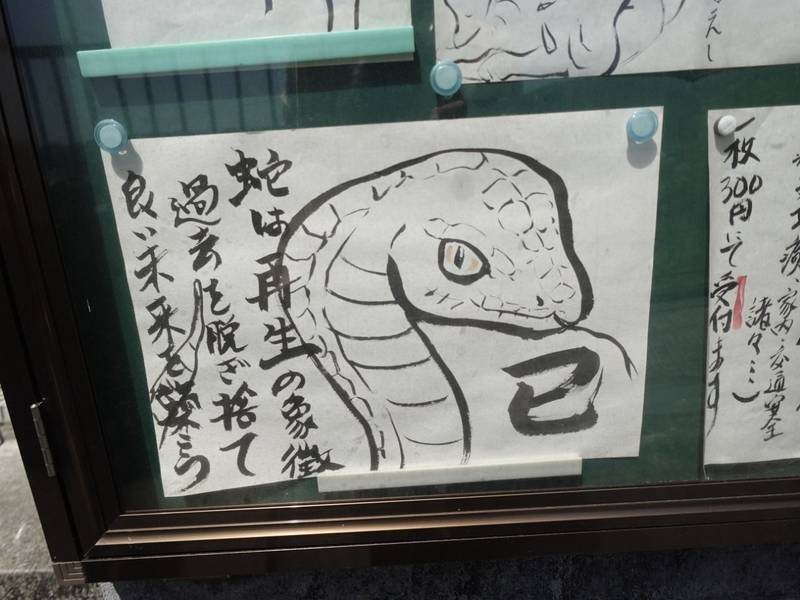 えし
蛇は再生の象徴
過去を脱ぎ捨て
良い未来を築こう
巳
諸々…)
家内・交通安全
一枚300円にて受付ます